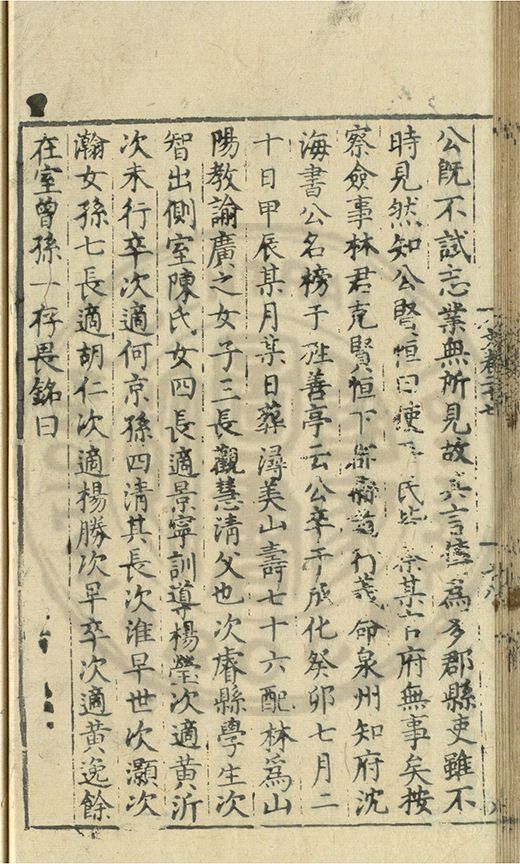 公既不試志業無所見故其言爲多郡縣吏雖不
時見然知公賢恒曰使民某官府無事矣按
察僉事林君克賢恒下行義命泉州知府沈
海書公名榜于旌善亭云公卒于成化癸卯七月二
十日甲辰某月某日葬潯美山壽七十六配林爲山
陽教諭廣之女子三長觀慧清父也次睿縣學生次
智出側室陳氏女四長適景寧訓導楊瑩次適黄沂
次未行卒次適何京孫四清其長次淮早世次灝次
瀚女孫七長適胡仁次適楊勝次早卒次適黄逸餘
在室曾孫一存畏銘曰